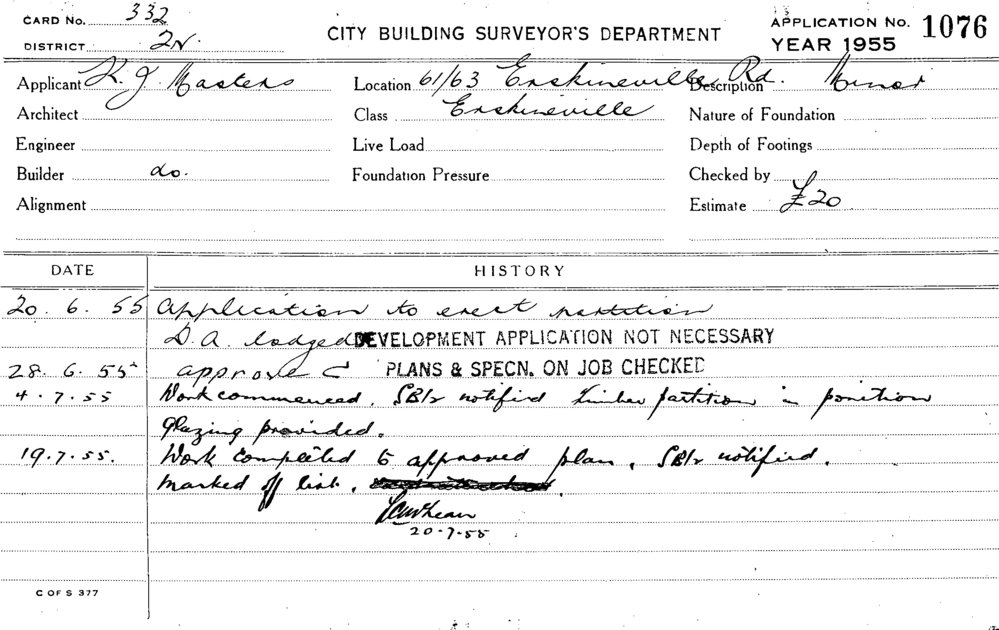 CARD No. 332
DISTRICT 2N.
CITY BUILDING SURVEYOR'S DEPARTMENT
APPLICATION No. 1076
YEAR 1955
Applicant K. J. Masters Location 61/63 Erskineville Rd. Description Minor
Architect Class Erskineville Nature of Foundation
Engineer Live Load Depth of Footings
Builder do. Foundation Pressure Checked by
Alignment Estimate £20
DATE HISTORY
20. 6. 55 Application to erect partition
D.A. lodged DEVELOPMENT APPLICATION NOT NECESSARY
28. 6. 55 approved PLANS & SPECN. ON JOB CHECKED
4. 7. 55 Work commenced. SBIr notified Timber partition in position
Glazing provided.
19. 7. 55. Work completed to approved plan. SBIr notified.
Marked off list.
20-7-55
C OF S 377